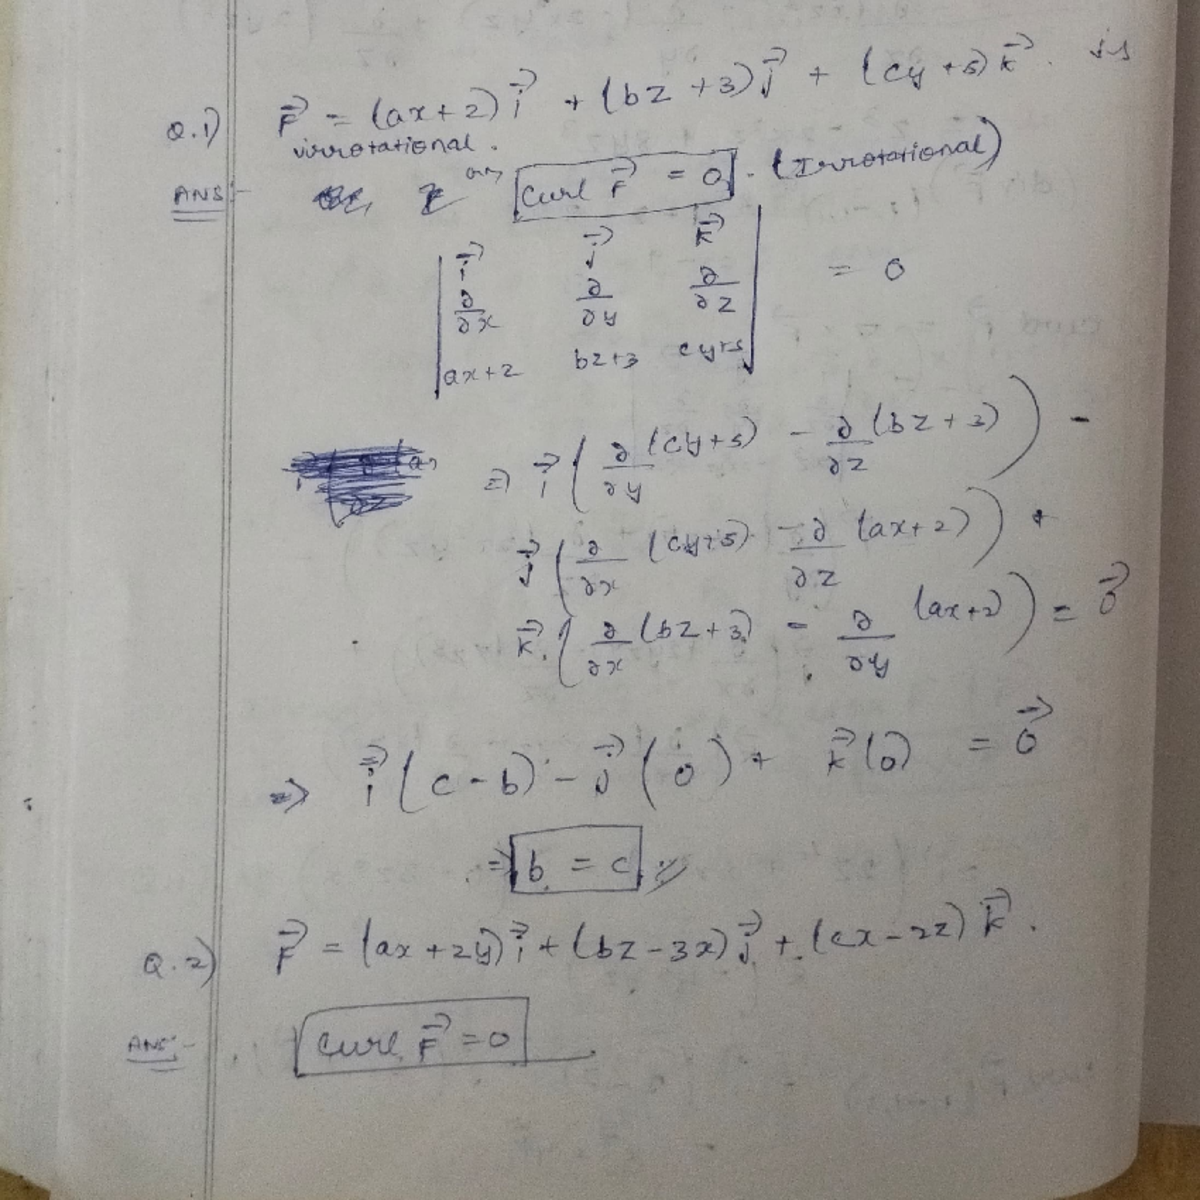 Q.1) F⃗ = (ax+2) i⃗ + (bz+3) j⃗ + (cy+5) k⃗. is
irrotational.
ANS:- Curl F⃗ = 0. (Irrotational)
| i⃗ j⃗ k⃗ |
| ∂/∂x ∂/∂y ∂/∂z | = 0
| ax+2 bz+3 cy+5 |
⇒ i⃗ ( ∂/∂y (cy+5) - ∂/∂z (bz+3) ) -
j⃗ ( ∂/∂x (cy+5) - ∂/∂z (ax+2) ) +
k⃗ ( ∂/∂x (bz+3) - ∂/∂y (ax+2) ) = 0⃗
⇒ i⃗ (c-b) - j⃗ (0) + k⃗ (0) = 0⃗
⇒ b = c
Q.2) F⃗ = (ax+2y) i⃗ + (bz-3x) j⃗ + (cx-2z) k⃗.
ANS:- Curl F⃗ = 0